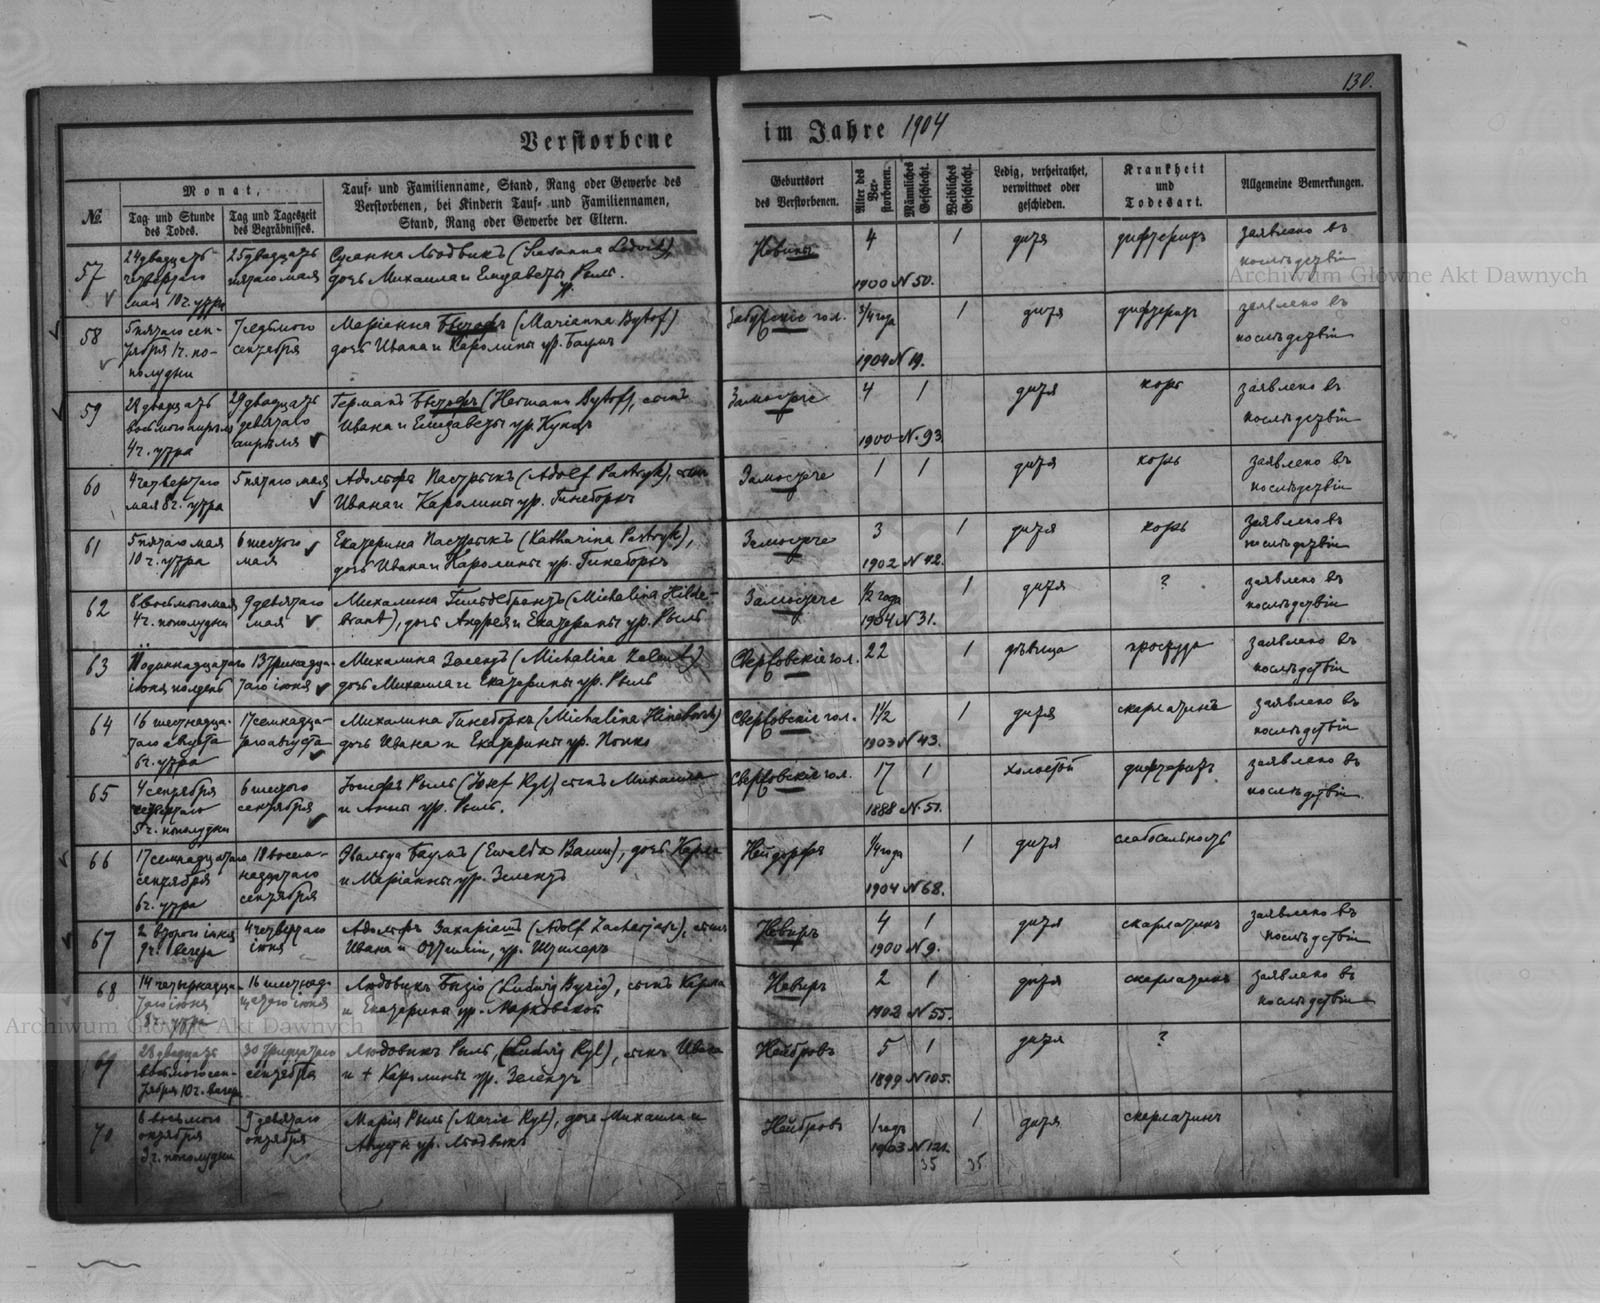 130.
Verstorbene im Jahre 1904
№.
Monat,
Tag und Stunde des Todes.
Tag und Tageszeit des Begräbnisses.
Tauf- und Familienname, Stand, Rang oder Gewerbe des
Verstorbenen, bei Kindern Tauf- und Familiennamen,
Stand, Rang oder Gewerbe der Eltern.
Geburtsort
des Verstorbenen.
Alter des Verstorbenen.
Männliches Geschlecht.
Weibliches Geschlecht.
Ledig, verheirathet,
verwittwet oder
geschieden.
Krankheit
und
Todesart.
Allgemeine Bemerkungen.
57
24 двадцать
четвертаго
мая 10 ч. утра
25 двадцать
пятаго мая
Сусанна Людвикъ (Susanna Ludwik),
дочь Михаила и Елизаветы Рыль.
ур.
4
1900 N 50.
1
дитя
дифтеритъ
заявлено въ
послѣдствіи
58
5 пятаго сен-
тября 1 ч. по-
полудни
7 седьмого
сентября
Маріанна Бытофъ (Marianna Bytof)
дочь Ивана и Каролины ур. Баумъ
гол.
3/4 года
1904 N 19.
1
дитя
дифтеритъ
заявлено въ
послѣдствіи
59
28 двадцать
восьмого апрѣля
4 ч. утра
29 двадцать
девятаго
апрѣля
Германъ Бытофъ (Hermann Bytof), сынъ
Ивана и Елизаветы ур. Кунцъ
Замостече
4
1900 N. 93
1
дитя
корь
заявлено въ
послѣдствіи
60
4 четвертаго
мая 8 ч. утра
5 пятаго мая
Адольфъ Пастрыкъ (Adolf Pastryk), сынъ
Ивана и Каролины ур. Гинеборхъ
Замостече
1
1
дитя
корь
заявлено въ
послѣдствіи
61
5 пятаго мая
10 ч. утра
6 шестого
мая
Екатерина Пастрыкъ (Katharina Pastryk),
дочь Ивана и Каролины ур. Гинеборхъ
Замостече
3
1902 N 42.
1
дитя
корь
заявлено въ
послѣдствіи
62
8 восьмого мая
4 ч. пополудни
9 девятаго
мая
Михалина Гильдебрантъ (Michalina Hilde-
brant), дочь Андрея и Екатерины ур. Рыль
Замостече
1/2 года
1904 N 31.
1
дитя
?
заявлено въ
послѣдствіи
63
11 одиннадцатаго
іюня полдень
13 тринадца-
таго іюня
Михалина Зелентъ (Michalina Zelent)
дочь Михаила и Екатерины ур. Рыль
Свержовскіе гол.
22
1
дѣвица
простуда
заявлено въ
послѣдствіи
64
16 шестнадца-
таго августа
6 ч. утра
17 семнадца-
таго августа
Михалина Гинеборхъ (Michalina Hineborch)
дочь Ивана и Екатерины ур. Попко
Свержовскіе гол.
1 1/2
1903 N 43.
1
дитя
скарлатинъ
заявлено въ
послѣдствіи
65
4 сентября
четвертаго
5 ч. пополудни
6 шестого
сентября
Іосифъ Рыль (Josef Ryl), сынъ Михаила
и Анны ур. Рыль.
Свержовскіе гол.
17
1888 N 51.
1
холостой
дифтеритъ
заявлено въ
послѣдствіи
66
17 семнадцатаго
сентября
6 ч. утра
18 восем-
надцатаго
сентября
Эвальда Баумъ (Ewalda Baum), дочь Карла
и Маріанны ур. Зелентъ
Нейдорфъ
1/4 года
1904 N 68.
1
дитя
слабосильность
67
2 второго іюня
9 ч. вечера
4 четвертаго
іюня
Адольфъ Захаріашъ (Adolf Zacharjasz), сынъ
Ивана и Оттиліи, ур. Шпилеръ
Невиръ
4
1900 N 9.
1
дитя
скарлатинъ
заявлено въ
послѣдствіи
68
14 четырнадца-
таго іюня
8 ч. утра
16 шестнад-
цатаго іюня
Людовикъ Бызіо (Ludwig Byzio), сынъ Карла
и Екатерины ур. Марковской
Невиръ
2
1902 N 55.
1
дитя
скарлатинъ
заявлено въ
послѣдствіи
69
28 двадцать
восьмого сен-
тября 10 ч. вечера
30 тридцатаго
сентября
Людовикъ Рыль, (Ludwig Ryl), сынъ Ивана
и + Каролины ур. Зелентъ
Нейбровъ
5
1899 N 105.
1
дитя
?
70
8 восьмого
октября
3 ч. пополудни
9 девятаго
октября
Марія Рыль (Maria Ryl), дочь Михаила и
Августы ур. Людвикъ
Нейбровъ
1 годъ
1903 N 121.
1
дитя
скарлатинъ
35
35
Archiwum Główne Akt Dawnych
Archiwum Główne Akt Dawnych